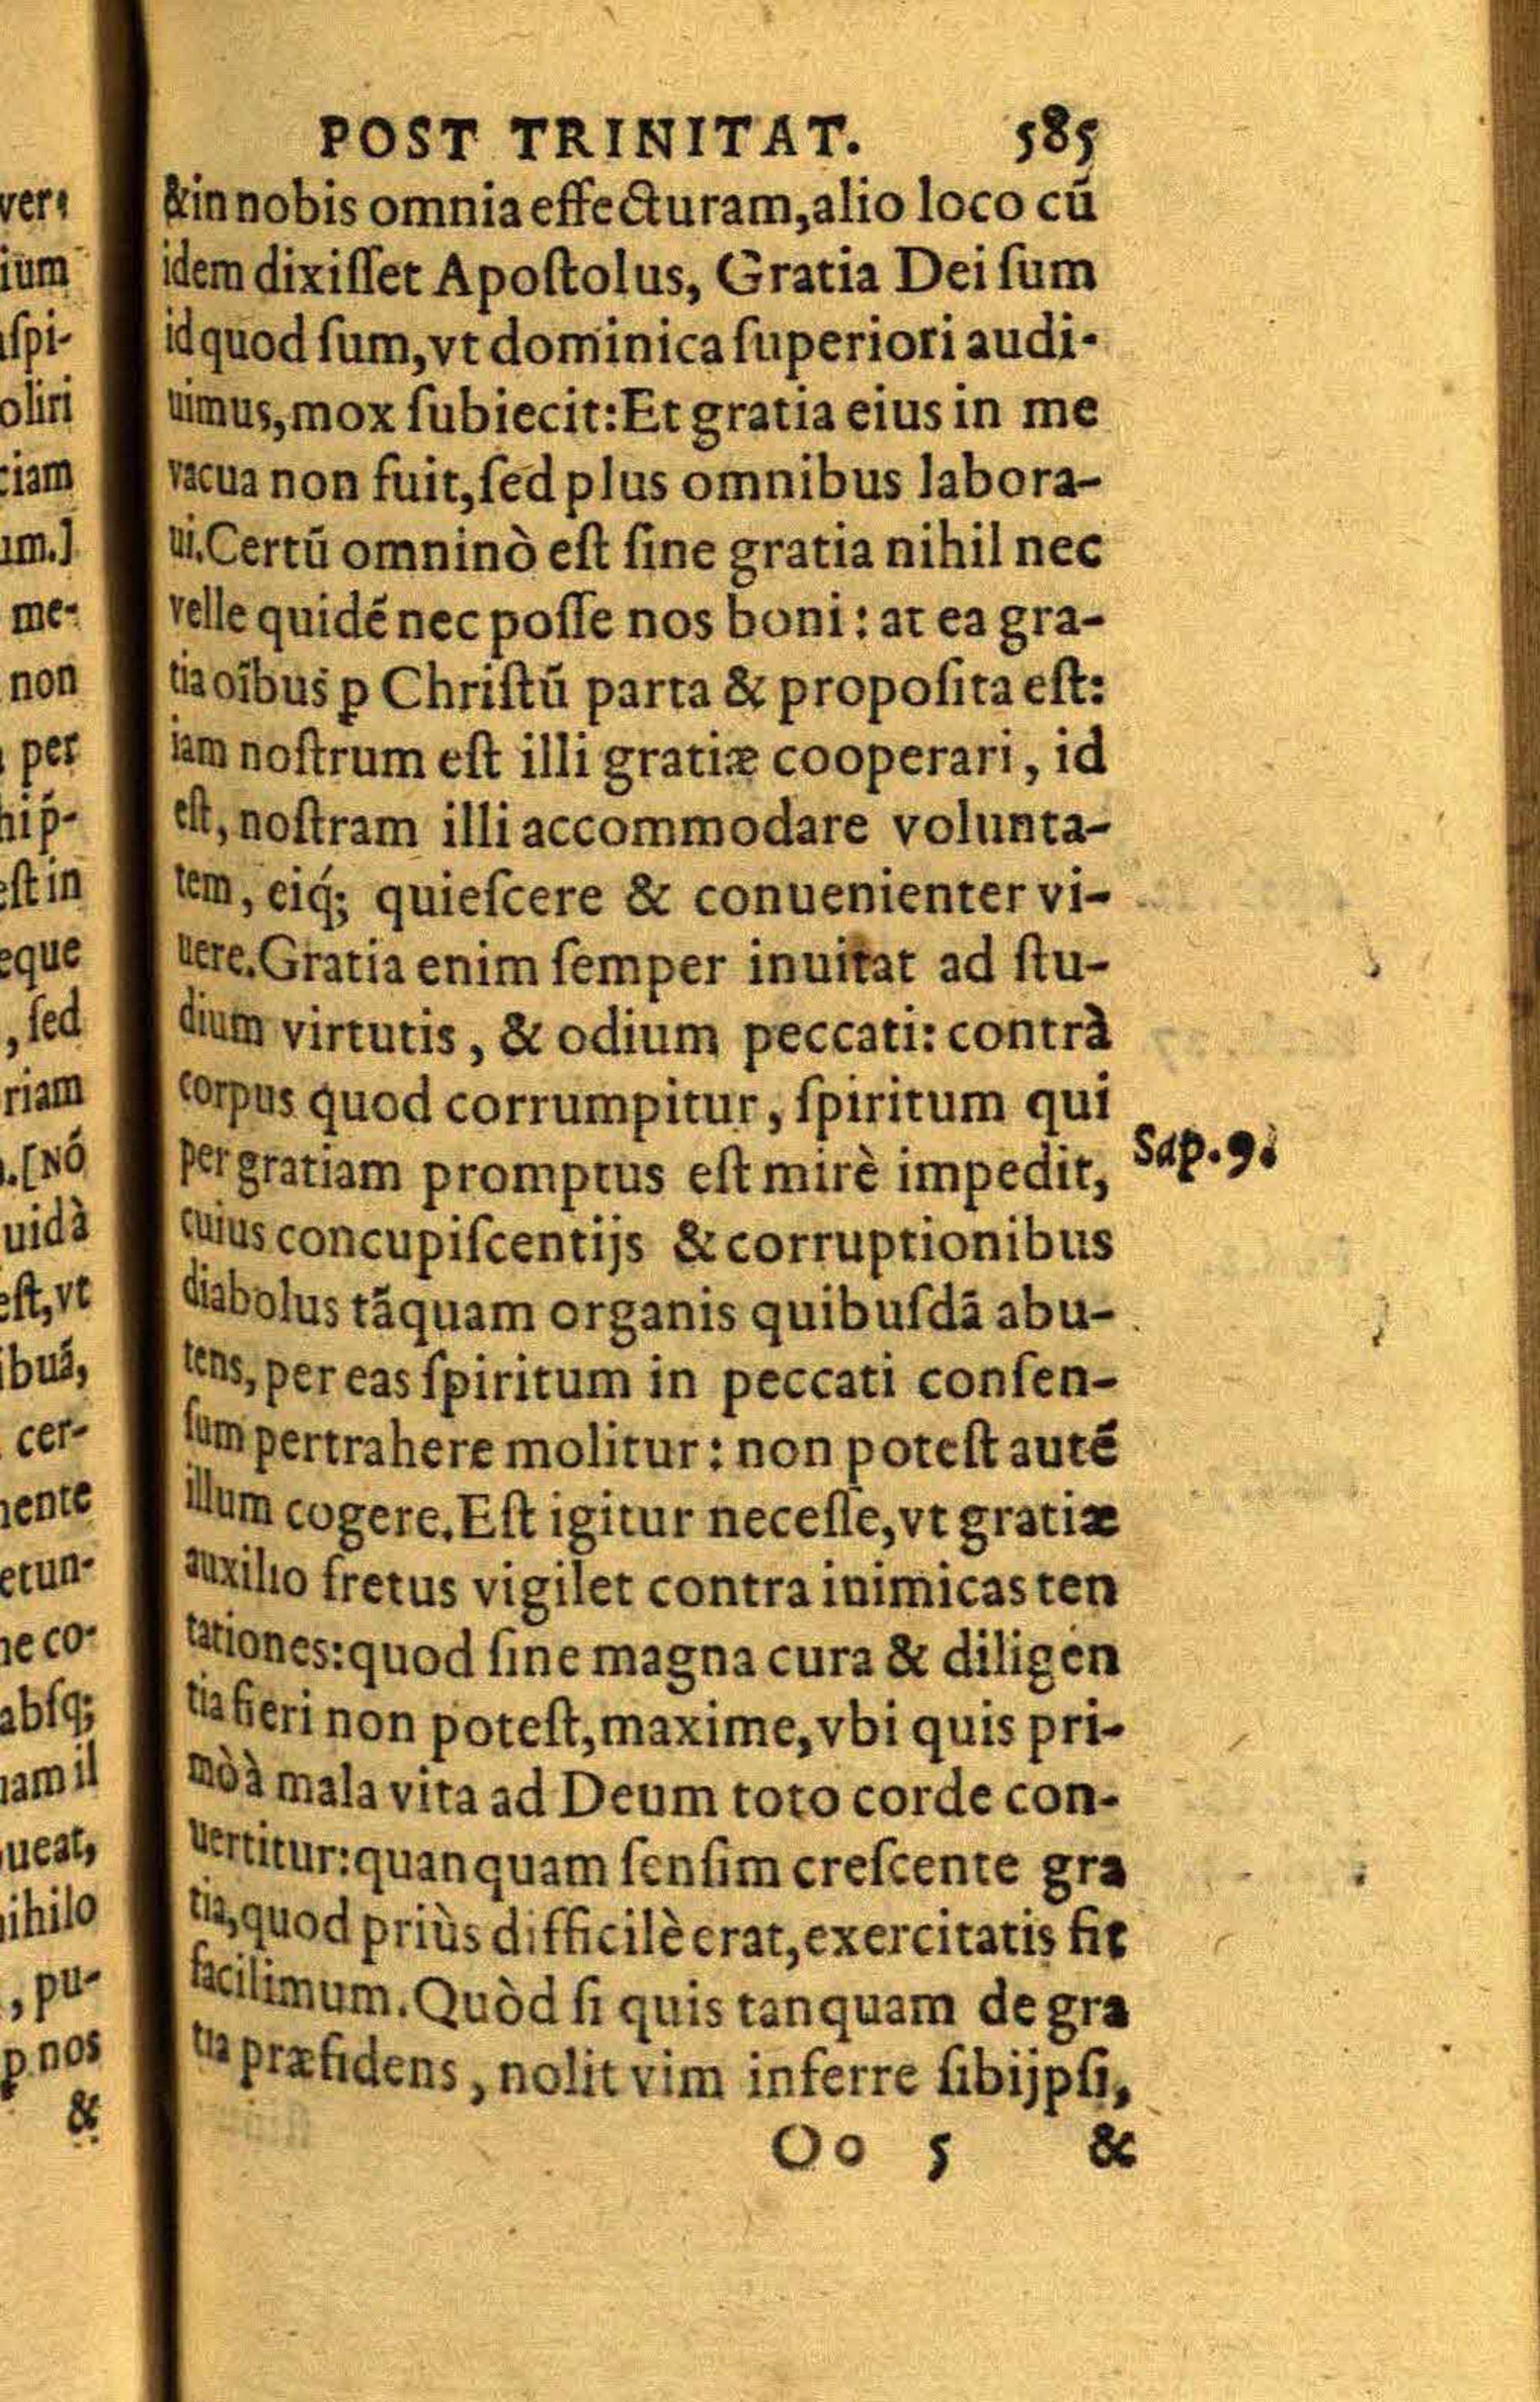 POST TRINITAT. 585
&in nobis omnia effecturam,alio loco cū
idem dixiſſet Apoſtolus, Gratia Dei ſum
id quod ſum,vt dominica ſuperiori audi-
uimus,mox ſubiecit:Et gratia eius in me
vacua non fuit,ſed plus omnibus labora-
ui.Certū omninò eſt ſine gratia nihil nec
velle quidē nec poſſe nos boni: at ea gra-
tia oībus ꝑ Chriſtū parta & propoſita eſt:
iam noſtrum eſt illi gratiæ cooperari, id
eſt, noſtram illi accommodare volunta-
tem, eiq́; quieſcere & conuenienter vi-
uere.Gratia enim ſemper inuitat ad ſtu-
dium virtutis, & odium peccati: contrà
corpus quod corrumpitur, ſpiritum qui
per gratiam promptus eſt mirè impedit,
Sap.9.
cuius concupiſcentijs & corruptionibus
diabolus tāquam organis quibuſdā abu-
tens, per eas ſpiritum in peccati conſen-
ſum pertrahere molitur: non poteſt autē
illum cogere.Eſt igitur neceſſe,vt gratiæ
auxilio fretus vigilet contra inimicas ten
tationes:quod ſine magna cura & diligen
tia fieri non poteſt,maxime,vbi quis pri-
mò à mala vita ad Deum toto corde con-
uertitur:quanquam ſenſim creſcente gra
tia,quod priùs difficilè erat,exercitatis fit
facilimum.Quòd ſi quis tanquam de gra
tia præfidens, nolit vim inferre ſibijpſi,
Oo 5 &
ium
ſpi-
oliri
ciam
um.]
me-
non
per
hip̄-
eſt in
eque
, ſed
riam
.[Nō
uidà
eſt,vt
ibuā,
cer-
nente
etun-
ne co-
abſq;
nam il
ueat,
ihilo
, pu-
ꝑ nos
&